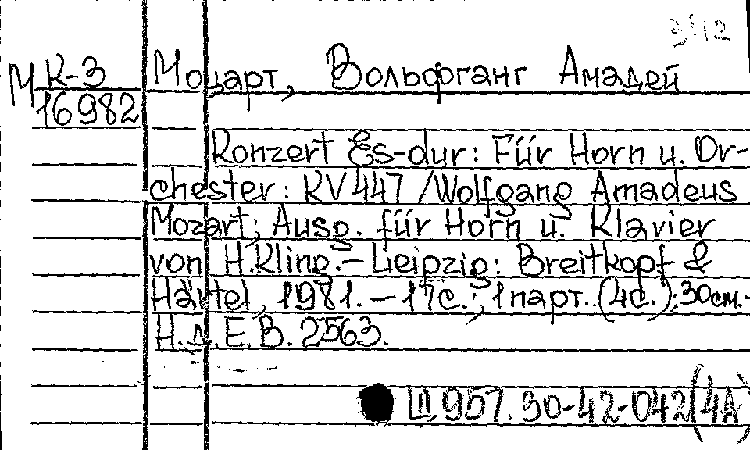 М К-3 Моцарт, Вольфганг Амадей
16982
Konzert Es-dur: Für Horn u. Or-
chester: KV 447 / Wolfgang Amadeus
Mozart; Ausg. für Horn u. Klavier
von H. Kling. – Leipzig: Breitkopf &
Härtel, 1981. – 17с.; 1 парт. (4с.); 30см. -
Н.д. E.B. 2563.
957. 30-42-042(4А)